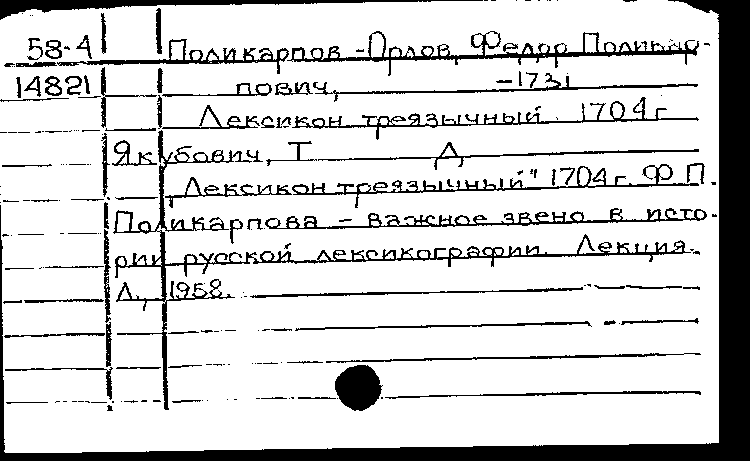 58-4 Поликарпов-Орлов, Федор Поликар-
14821 пович, -1731
Лексикон треязычный 1704 г
Якубович, Т Д
„Лексикон треязычный" 1704 г. Ф. П.
Поликарпова - важное звено в исто-
рии русской лексикографии. Лекция.
Л., 1958.